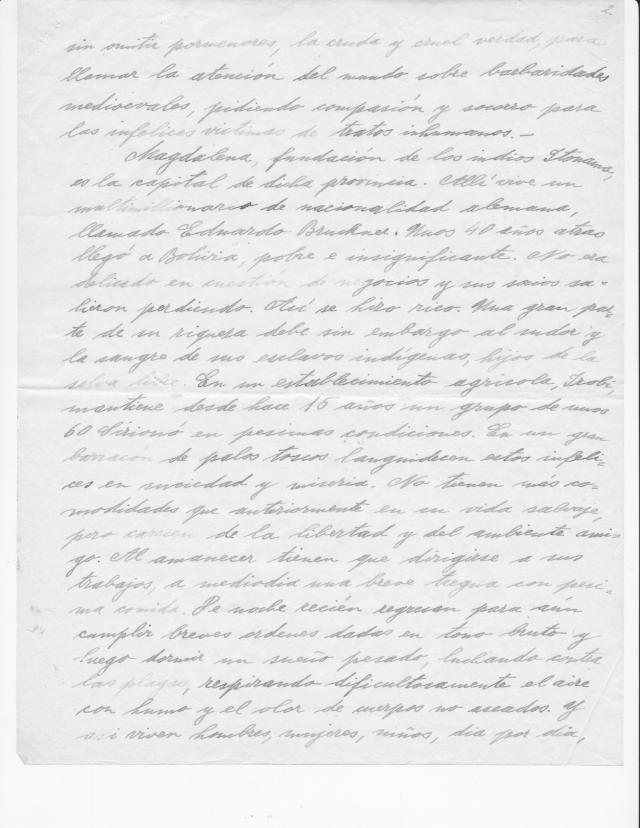 2
sin omitir pormenores, la cruda y cruel verdad, para
llamar la atención del mundo sobre barbaridades
medioevales, pidiendo compasión y socorro para
las infelices victimas de tratos inhumanos.—
Magdalena, fundación de los indios Itonama,
es la capital de dicha provincia. Allí vive un
multimillionario de nacionalidad alemana,
llamado Eduardo Bruckner. Unos 40 años atras
llegó a Bolivia, pobre e insignificante. No era
delicado en cuestión de negocios y sus socios sa-
lieron perdiendo. Así se hizo rico. Una gran par-
te de su riqueza debe sin embargo al sudor y
la sangre de sus esclavos indigenas, hijos de la
selva libre. En un establecimiento agrisola,
mantiene desde hace 15 años un grupo de unos
60 Sirionó en pesimas condiciones. En un gran
barracón de palos toscos languidecen estos infeli-
ces en suciedad y miseria. No tienen más co-
modidades que anteriormente en su vida salvaje,
pero carecen de la libertad y del ambiente ami-
go. Al amanecer tienen que dirigirse a sus
trabajos, a mediodia una breve tregua con pesi-
ma comida. De noche recién regresan para aún
cumplir breves ordenes dadas en tono bruto y
luego dormir un sueño pesado, luchando contra
las plagas, respirando dificultosamente el aire
con humo y el olor de cuerpos no aseados. Y
asi viven hombres, mujeres, niños, dia por dia,